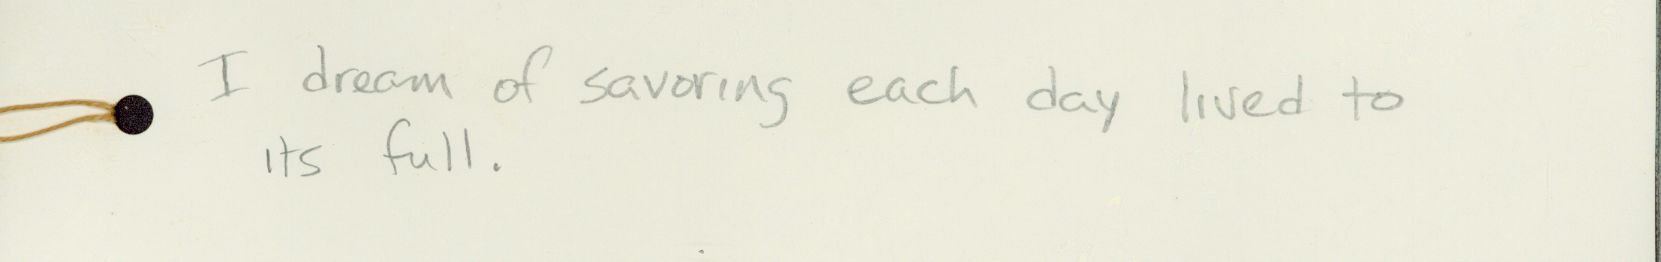 I dream of savoring each day lived to
its full.